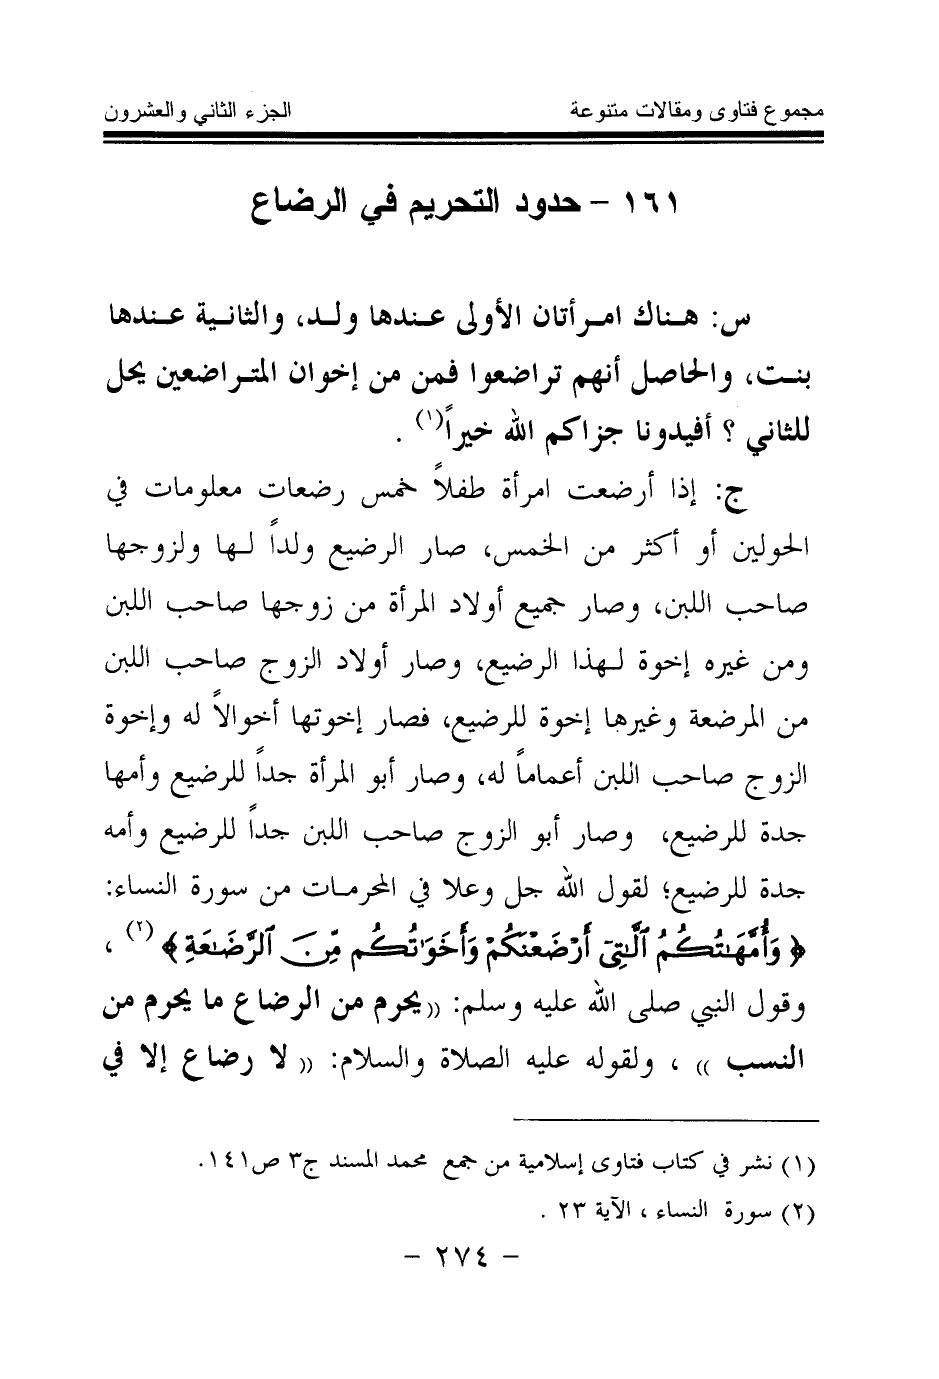 مجموع فتاوى ومقالات متنوعة الجزء الثاني والعشرون
١٦١ - حدود التحريم في الرضاع
س: هناك امرأتان الأولى عندها ولد، والثانية عندها
بنت، والحاصل أنهم تراضعوا فمن من إخوان المتراضعين يحل
للثاني ؟ أفيدونا جزاكم الله خيراً(١) .
ج: إذا أرضعت امرأة طفلاً خمس رضعات معلومات في
الحولين أو أكثر من الخمس، صار الرضيع ولداً لها ولزوجها
صاحب اللبن، وصار جميع أولاد المرأة من زوجها صاحب اللبن
ومن غيره إخوة لهذا الرضيع، وصار أولاد الزوج صاحب اللبن
من المرضعة وغيرها إخوة للرضيع، فصار إخوتها أخوالاً له وإخوة
الزوج صاحب اللبن أعماماً له، وصار أبو المرأة جداً للرضيع وأمها
جدة للرضيع، وصار أبو الزوج صاحب اللبن جداً للرضيع وأمه
جدة للرضيع؛ لقول الله جل وعلا في المحرمات من سورة النساء:
﴿ وَأُمَّهَٰتُكُمُ ٱلَّٰتِىٓ أَرْضَعْنَكُمْ وَأَخَوَٰتُكُم مِّنَ ٱلرَّضَٰعَةِ ﴾(٢) ،
وقول النبي صلى الله عليه وسلم: ((يحرم من الرضاع ما يحرم من
النسب )) ، ولقوله عليه الصلاة والسلام: (( لا رضاع إلا في
(١) نشر في كتاب فتاوى إسلامية من جمع محمد المسند ج٣ ص١٤١.
(٢) سورة النساء ، الآية ٢٣ .
- ٢٧٤ -